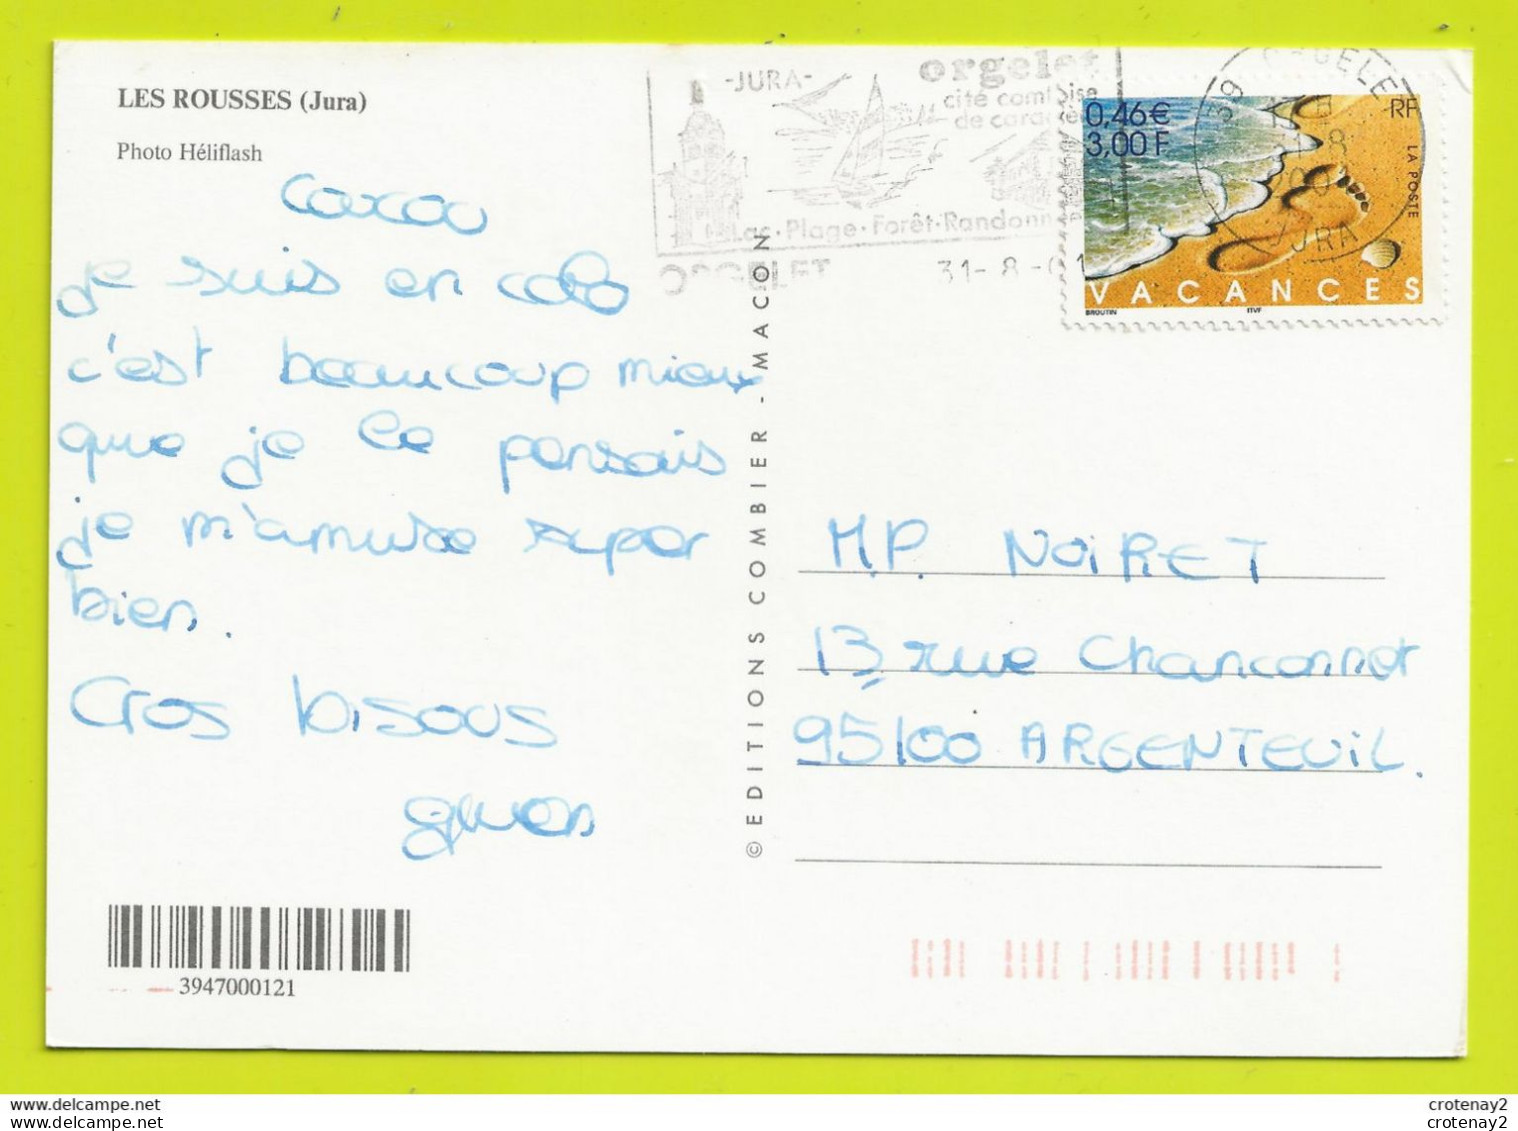 LES ROUSSES (Jura)
Photo Héliflash
Coucou
je suis en colo
c'est beaucoup mieux
que je le pensais
je m'amuse super
bien.
Gros bisous
3947000121
© EDITIONS COMBIER - MACON
-JURA-
orgelet
cité comtoise
de caractè
Lac·Plage·Forêt·Randonn
ORGELET
31-8-01
39 ORGELE
JURA
0,46€
3,00 F
RF
LA POSTE
VACANCES
BROUTIN ITVF
M.P. NOIRET
13, rue Chanconnet
95100 ARGENTEUIL.
crotenay2
crotenay2
delcampe.net
delcampe.net